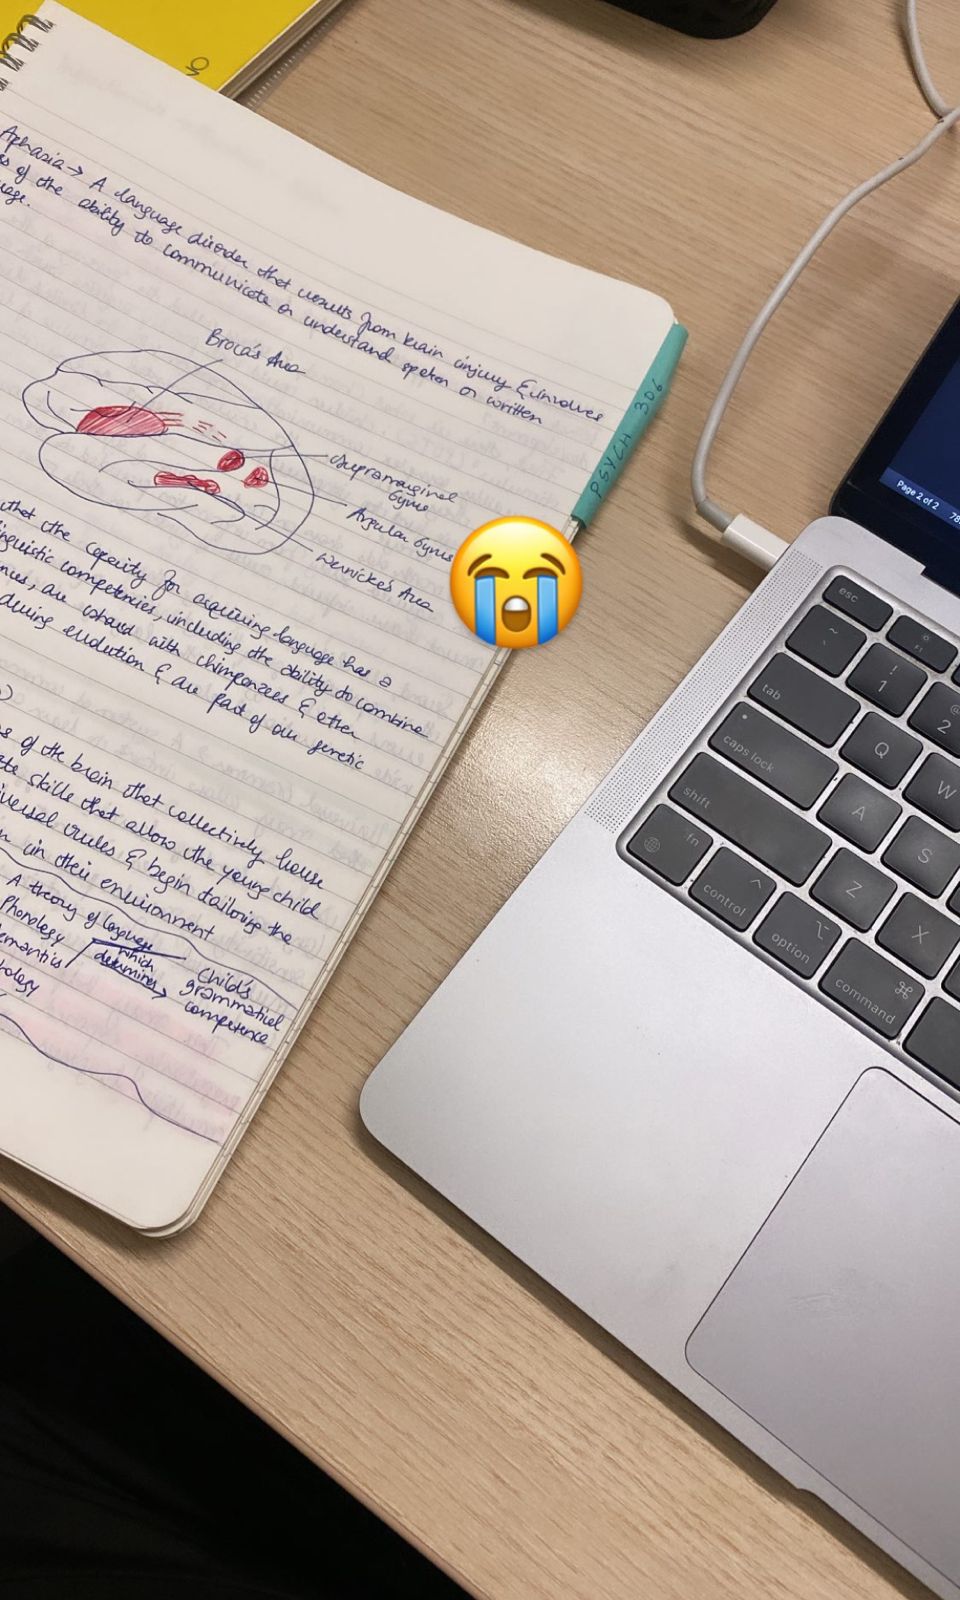 Aphasia → A language disorder that results from brain injury & involves
of the ability to communicate or understand spoken or written
Broca's Area
Supramarginal
Gyrus
Angular Gyrus
Wernicke's Area
that the capacity for acquiring language has a
linguistic competencies, including the ability to combine
are shared with chimpanzees & other
during evolution & are part of our genetic
of the brain that collectively house
skills that allow the young child
rules & begin tailoring the
in their environment
A theory of language
Phonology
which
determines
Child's
grammatical
competence
PSYCH 306
Page 2 of 2
esc
F1
~
`
!
1
2
tab
Q
W
caps lock
A
S
shift
Z
X
fn
control
option
command